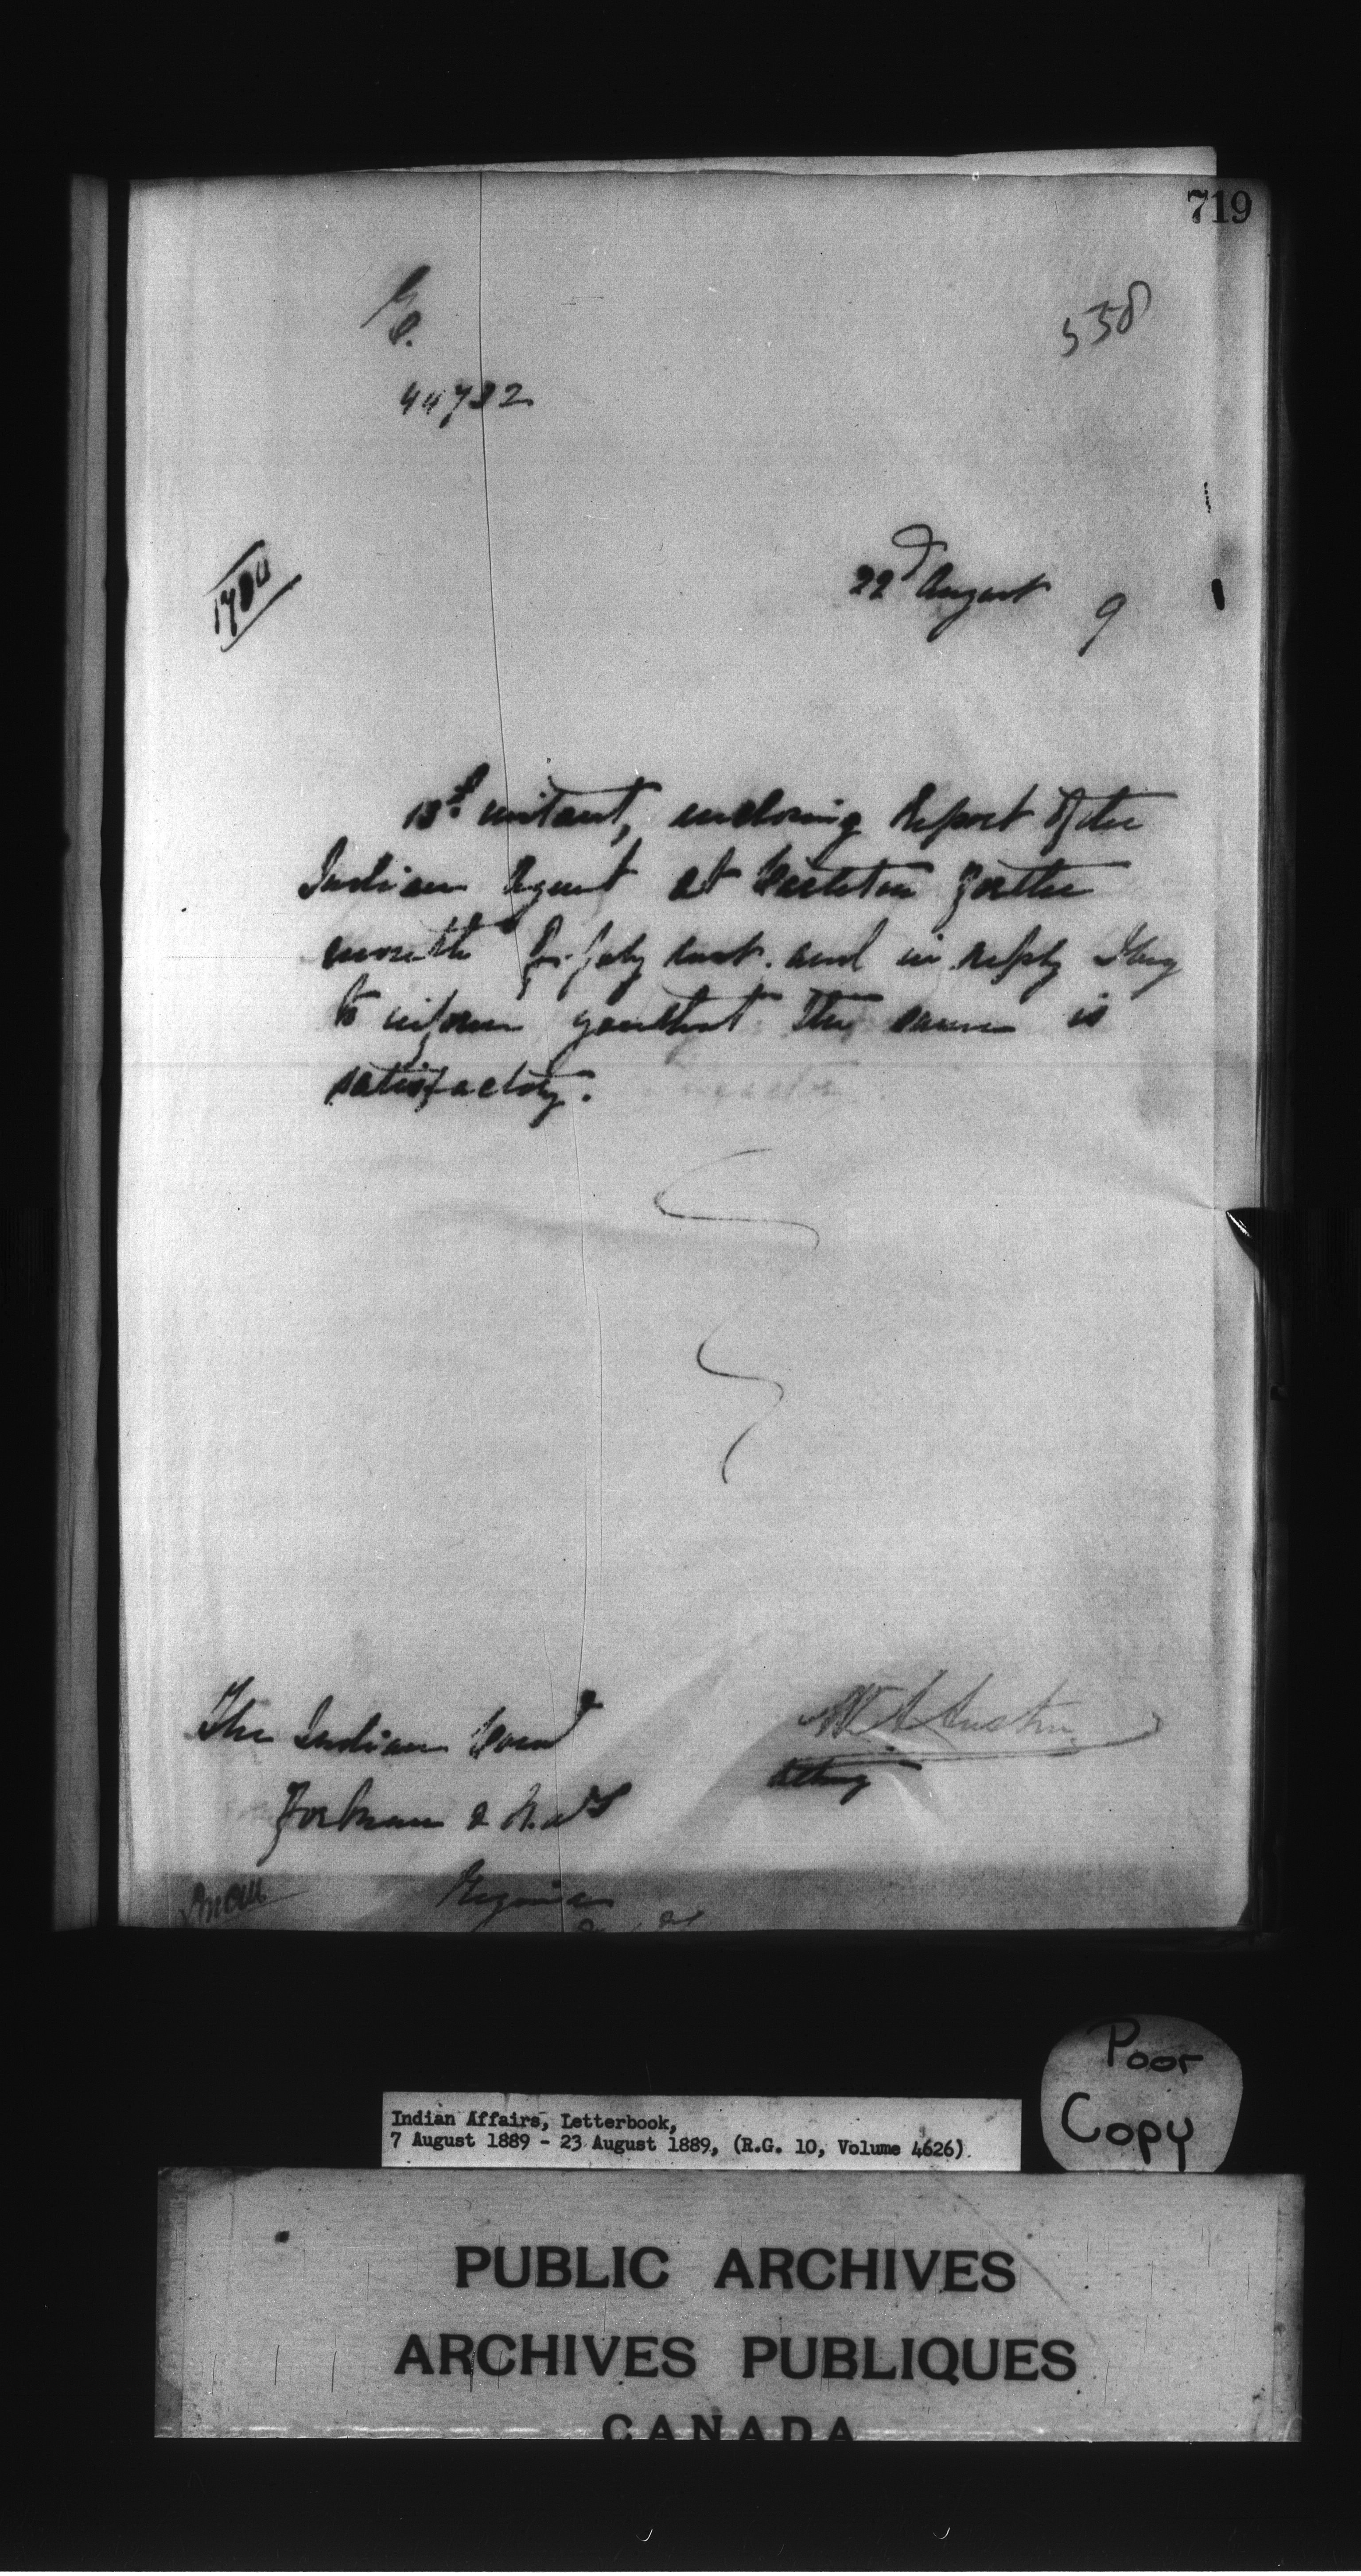 719
558
44732
22d August 9
13th instant, enclosing Report of the
Indian Agent at Carleton for the
month of July last. and in reply I beg
to inform you that the same is
satisfactory.
W A Austin
Acting
The Indian Comr
for Man & N.W.T
Regina
Indian Affairs, Letterbook,
7 August 1889 - 23 August 1889, (R.G. 10, Volume 4626)
Poor
Copy
PUBLIC ARCHIVES
ARCHIVES PUBLIQUES
CANADA